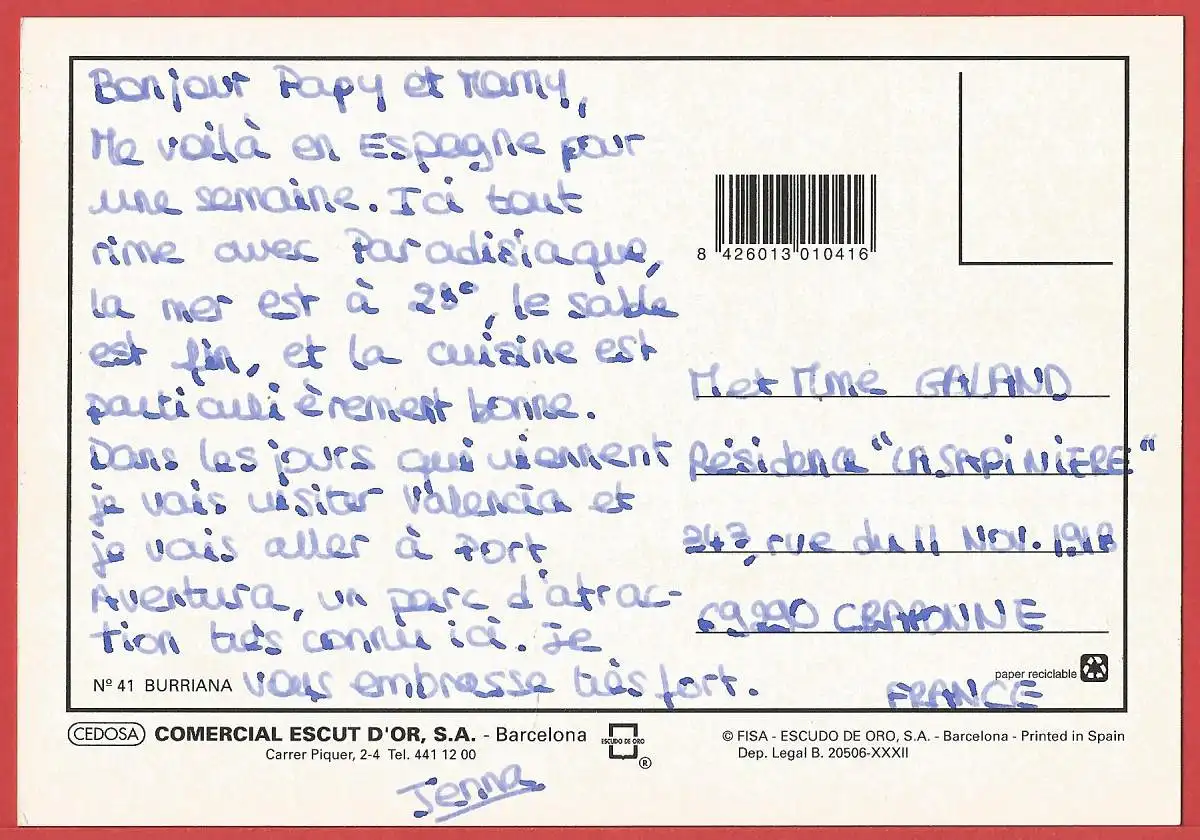 Bonjour Papy et Mamy,
Me voilà en Espagne pour
une semaine. Ici tout
rime avec Paradisiaque,
la mer est à 25°, le sable
est fin, et la cuisine est
particulièrement bonne.
Dans les jours qui viennent
je vais visiter Valencia et
je vais aller à Port
Aventura, un parc d'atrac-
tion très connu ici. Je
vous embrasse très fort.
Jenna
8 426013 010416
M et Mme GALAND
Résidence "LA SAPINIERE"
247, rue du 11 Nov. 1918
69290 CRAPONNE
FRANCE
paper reciclable
Nº 41 BURRIANA
CEDOSA COMERCIAL ESCUT D'OR, S.A. - Barcelona
Carrer Piquer, 2-4 Tel. 441 12 00
ESCUDO DE ORO ®
© FISA - ESCUDO DE ORO, S.A. - Barcelona - Printed in Spain
Dep. Legal B. 20506-XXXII